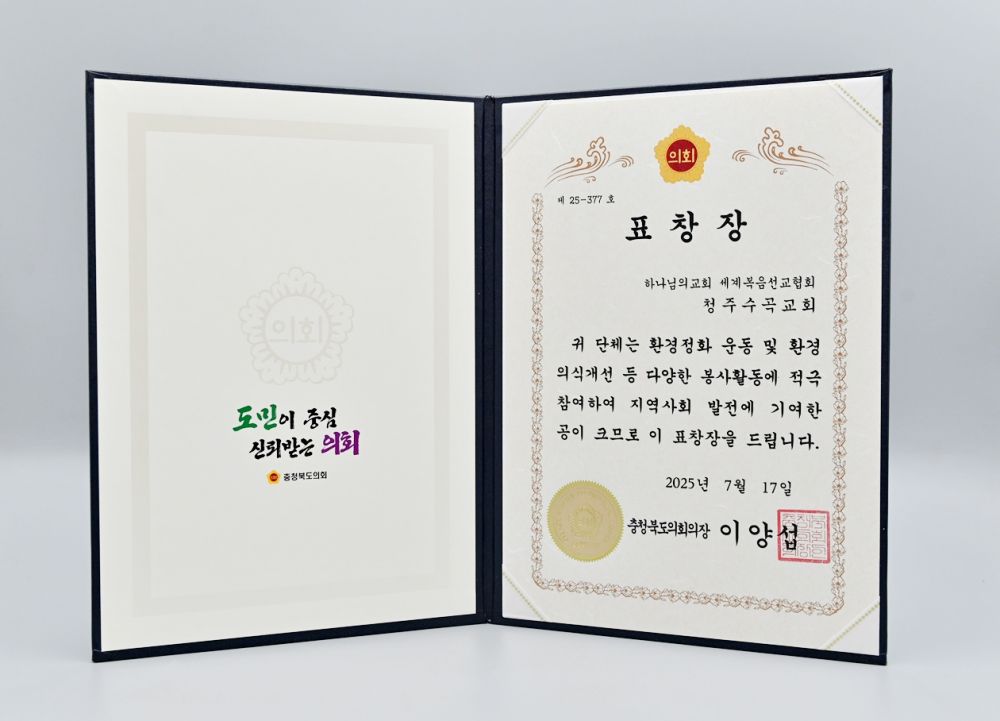 의회
도민이 중심
신뢰받는 의회
충청북도의회
의회
제 25-377 호
표창장
하나님의교회 세계복음선교협회
청주수곡교회
귀 단체는 환경정화 운동 및 환경
의식개선 등 다양한 봉사활동에 적극
참여하여 지역사회 발전에 기여한
공이 크므로 이 표창장을 드립니다.
2025년 7월 17일
충청북도의회의장 이양섭